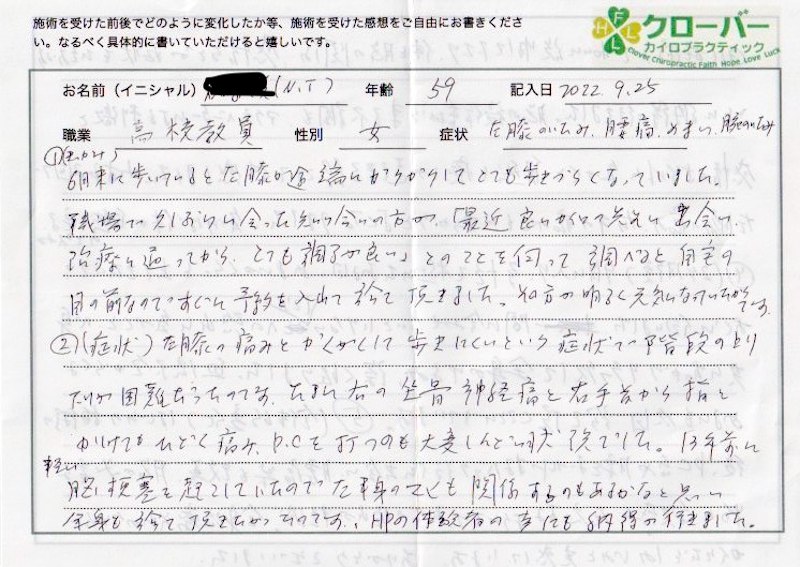 施術を受けた前後でどのように変化したか等、施術を受けた感想をご自由にお書きくださ
い。なるべく具体的に書いていただけると嬉しいです。
FHLL
クローバー
カイロプラクティック
Clover chiropractic Faith Hope Love Luck
お名前（イニシャル） (N.T) 年齢 59 記入日 2022.9.25
職業 高校教員 性別 女 症状 左膝のいたみ、腰痛、めまい、腕のいたみ
①(きっかけ)
6月末に歩いていると左膝が途端にがくがくしてとても歩きづらくなっていました。
職場で久しぶりに会った知り合いの方が、「最近良いカイロの先生に出会い、
治療に通ってから、とても調子が良い」とのことを伺って調べると自宅の
目の前なのですぐに予約を入れて診て頂きました。その方が明るく元気になっていたからです。
②(症状) 左膝の痛みとがくがくして歩きにくいという症状で階段の上り
下りが困難だったのです。また右の坐骨神経痛と右手首から指に
かけてもひどく痛み、P.Cを打つのも大変しんどい状況でした。13年前に
軽い
脳梗塞を起こしていたので左半身のことも関係するのもあるかなと思い
全身を診て頂きたかったのです。HPの体験者の声にも納得が行きました。